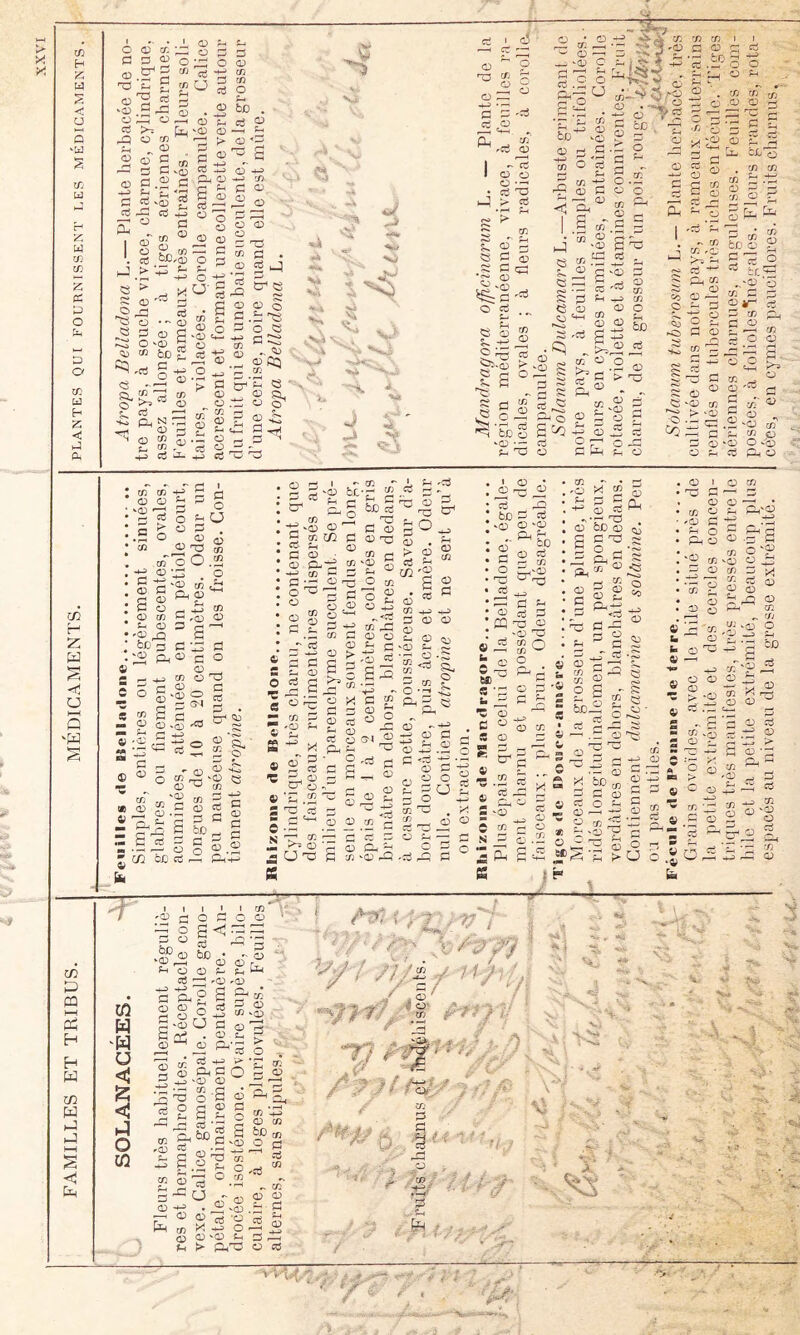 XXVI
FAMILLES ET TRIBUS.
MÉDICAMENTS.
PLANTES QUI FOURNISSENT LES MÉDICAMENTS.
SOLANACÉES.
Fleurs très habituellemnent réguliè-
res et hermaphrodites. Réceptacle con-
vexe. Calice gamosépale. Corolle gamo-
pétale, ordinairement pentamère. An-
drocée isostémone. Ovaire supère, bilo-
culaire, à loges pluriovulées. Feuilles
alternes, sans stipules.
Fruits charnus et indéhiscents.
Feuilles de Belladone
Simples, entières ou légèrement sinuées,
glabres ou finement pubescentes, ovales,
acuminées, atténuées en un pétiole court,
longues de 10 à 20 centimètres. Odeur un
peu nauséeuse quand on les froisse. Con-
tiennent atropine.
Rhizome de Belladone
Cylindrique, très charnu, ne contenant que
des faisceaux rudimentaires dispersés au
milieu d'un parenchyme succulent. Se pré-
sente en morceaux souvent fendus en long,
épais de 1 à 2 centimètres, colorés en gris
brunâtre en dehors, blanchâtres en dedans,
à cassure nette, poussiéreuse. Saveur d'a-
bord douceâtre, puis âcre et amère. Odeur
nulle. Contient atropine et ne sert qu'à
on extraction.
Rhizome de Mandragore
Plus épais que celui de la Belladone, égale-
ment charnu et ne possédant que peu de
faisceaux; plus brun. Odeur désagréable.
Tiges de Douce-amère
Morceaux de la grosseur d'une plume, très
ridés longitudinalement, un peu spongieux,
verdâtres en dehors, blanchâtres en dedans.
Contiennent dulcamarine et solanine. Peu
ou pas utiles.
Fécule de Pomme de terre
Grains ovoïdes, avec le hile situé près de
la petite extrémité et des cercles concen-
triques très manifestes, très pressés entre le
hile et la petite extrémité, beaucoup plus
espacés au niveau de la grosse extrémité.
Atropa Belladona L. — Plante herbacée de no-
tre pays, à souche vivace, charnue, cylindrique,
assez allongée; à tiges aériennes charnues.
Feuilles et rameaux très entraînés. Fleurs soli-
taires, violacées. Corolle campanulée. Calice
accrescent et formant une collerette verte autour
du fruit qui est une baie succulente, de la grosseur
d'une cerise, noire quand elle est mûre.
Atropa Belladona L.
Mandragora officinarum L. — Plante de la
région méditerranéenne, vivace, à feuilles ra-
dicales, ovales; à fleurs radicales, à corolle
campanulée.
Solanum Dulcamara L. — Arbuste grimpant de
notre pays, à feuilles simples ou trifoliolées.
Fleurs en cymes ramifiées, entraînées. Corolle
rotacée, violette et à étamines conniventes. Fruit
charnu, de la grosseur d'un pois, rouge.
Solanum tuberosum L. — Plante herbacée, très
cultivée dans notre pays, à rameaux souterrains
renflés en tubercules très riches en fécule. Tiges
aériennes charnues, anguleuses. Feuilles com-
posées, à folioles inégales. Fleurs grandes, rota-
cées, en cymes pauciflores. Fruits charnus,